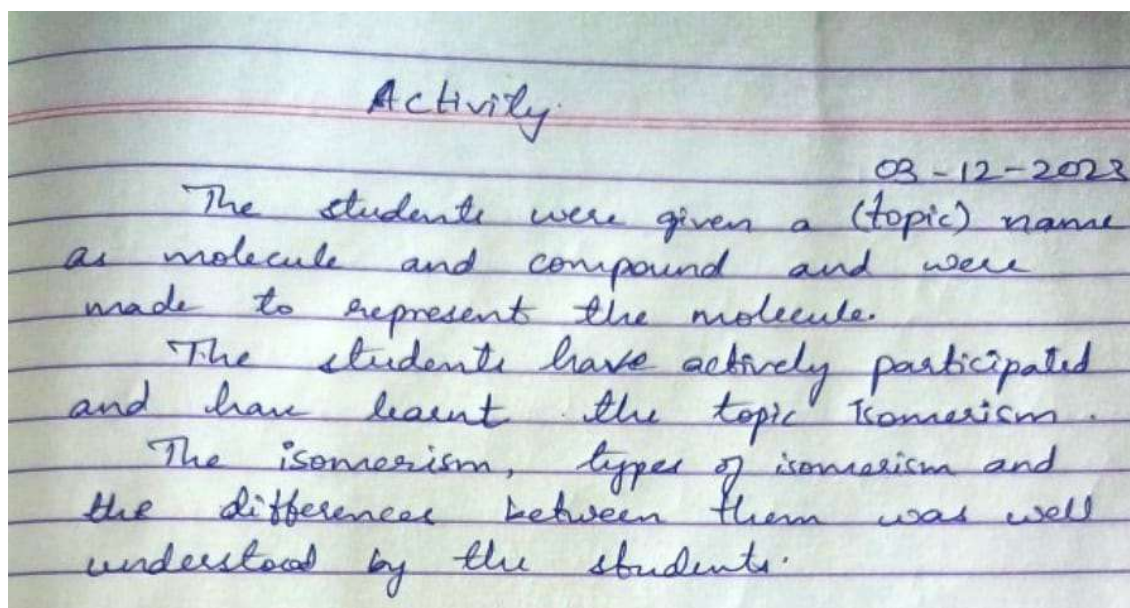 Activity.
03-12-2023
The students were given a (topic) name
as molecule and compound and were
made to represent the molecule.
The students have actively participated
and have learnt the topic Isomerism.
The isomerism, types of isomerism and
the differences between them was well
understood by the students.